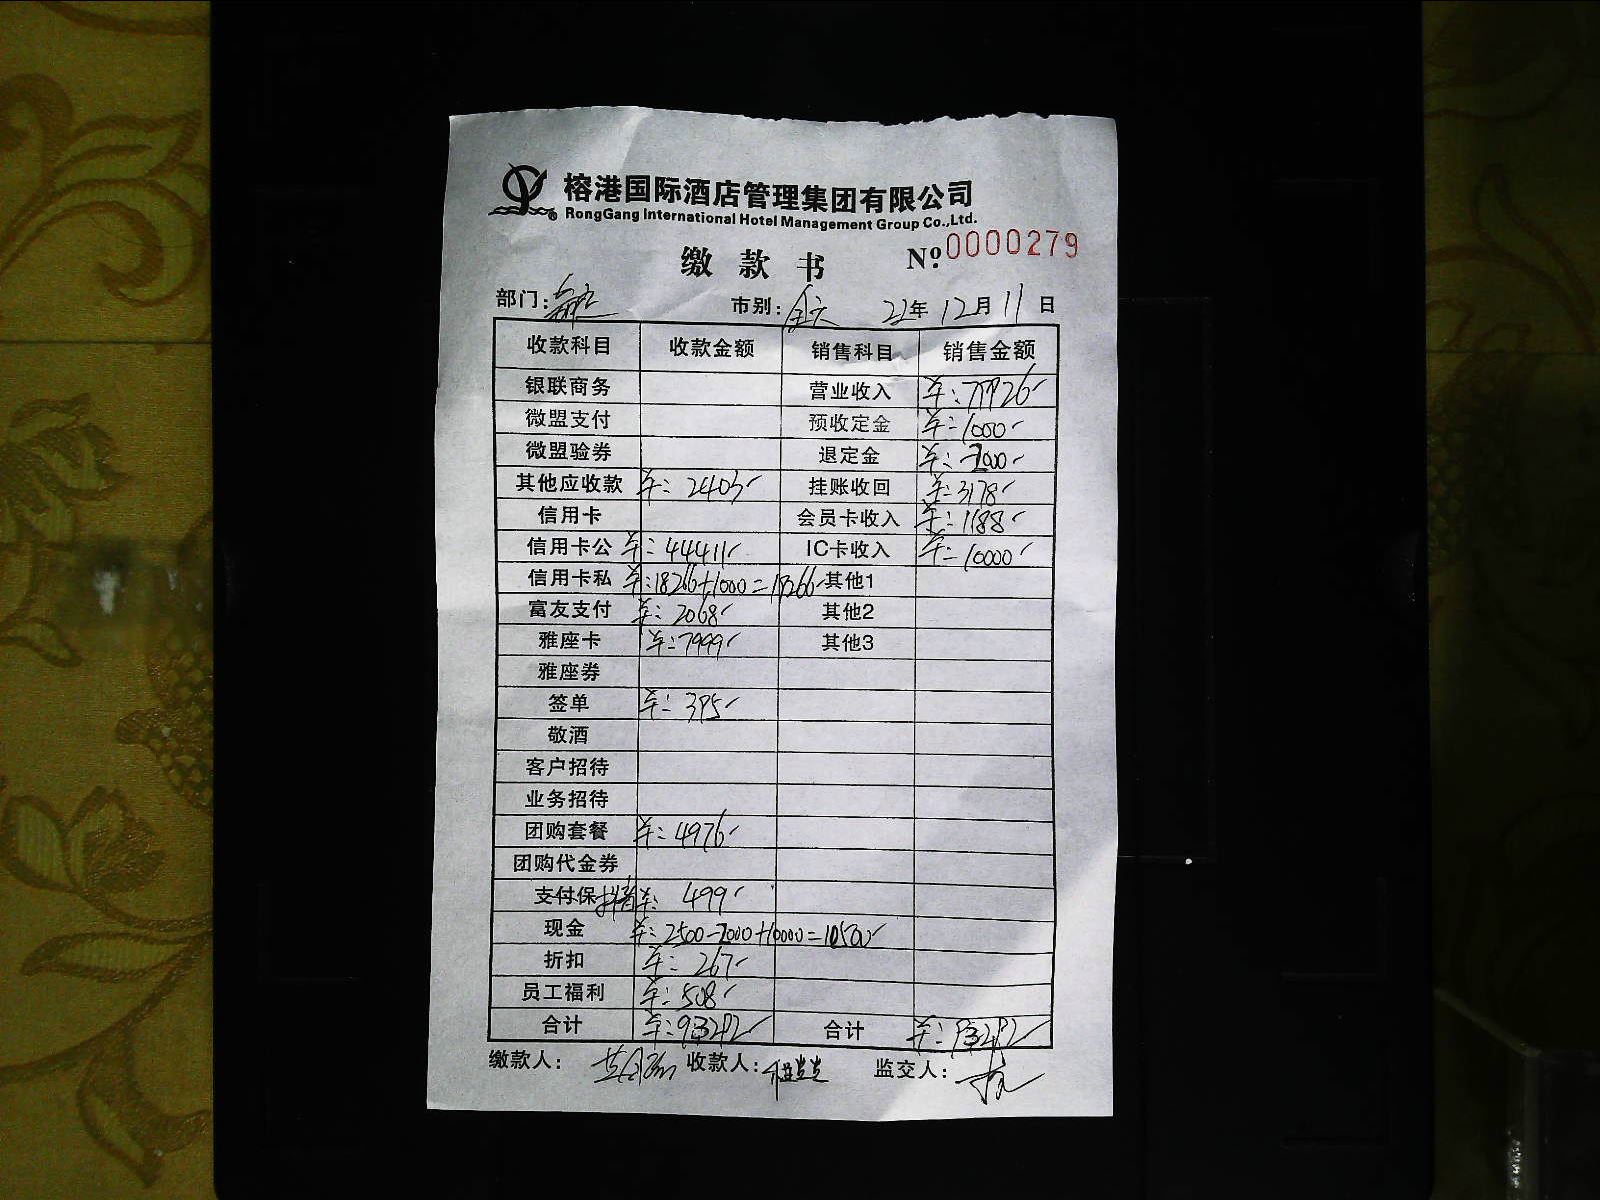 榕港国际酒店管理集团有限公司
RongGang International Hotel Management Group Co.,Ltd.
缴款书 №.0000279
部门: 市别:全天 22年12月11日
收款科目 收款金额 销售科目 销售金额
银联商务 营业收入 ¥:79926
微盟支付 预收定金 ¥:1000
微盟验券 退定金 ¥:-2000
其他应收款 ¥:2403 挂账收回 ¥:3178
信用卡 会员卡收入 ¥:1188
信用卡公 ¥:44411 IC卡收入 ¥:10000
信用卡私 ¥:18266+1000=19266 其他1
富友支付 ¥:2068 其他2
雅座卡 ¥:7999 其他3
雅座券
签单 ¥:395
敬酒
客户招待
业务招待
团购套餐 ¥:4976
团购代金券
支付保 抖音 ¥:499
现金 ¥:2500-2000+10000=10500
折扣 ¥:267
员工福利 ¥:508
合计 ¥:93292 合计 ¥:93292
缴款人: 收款人: 监交人: